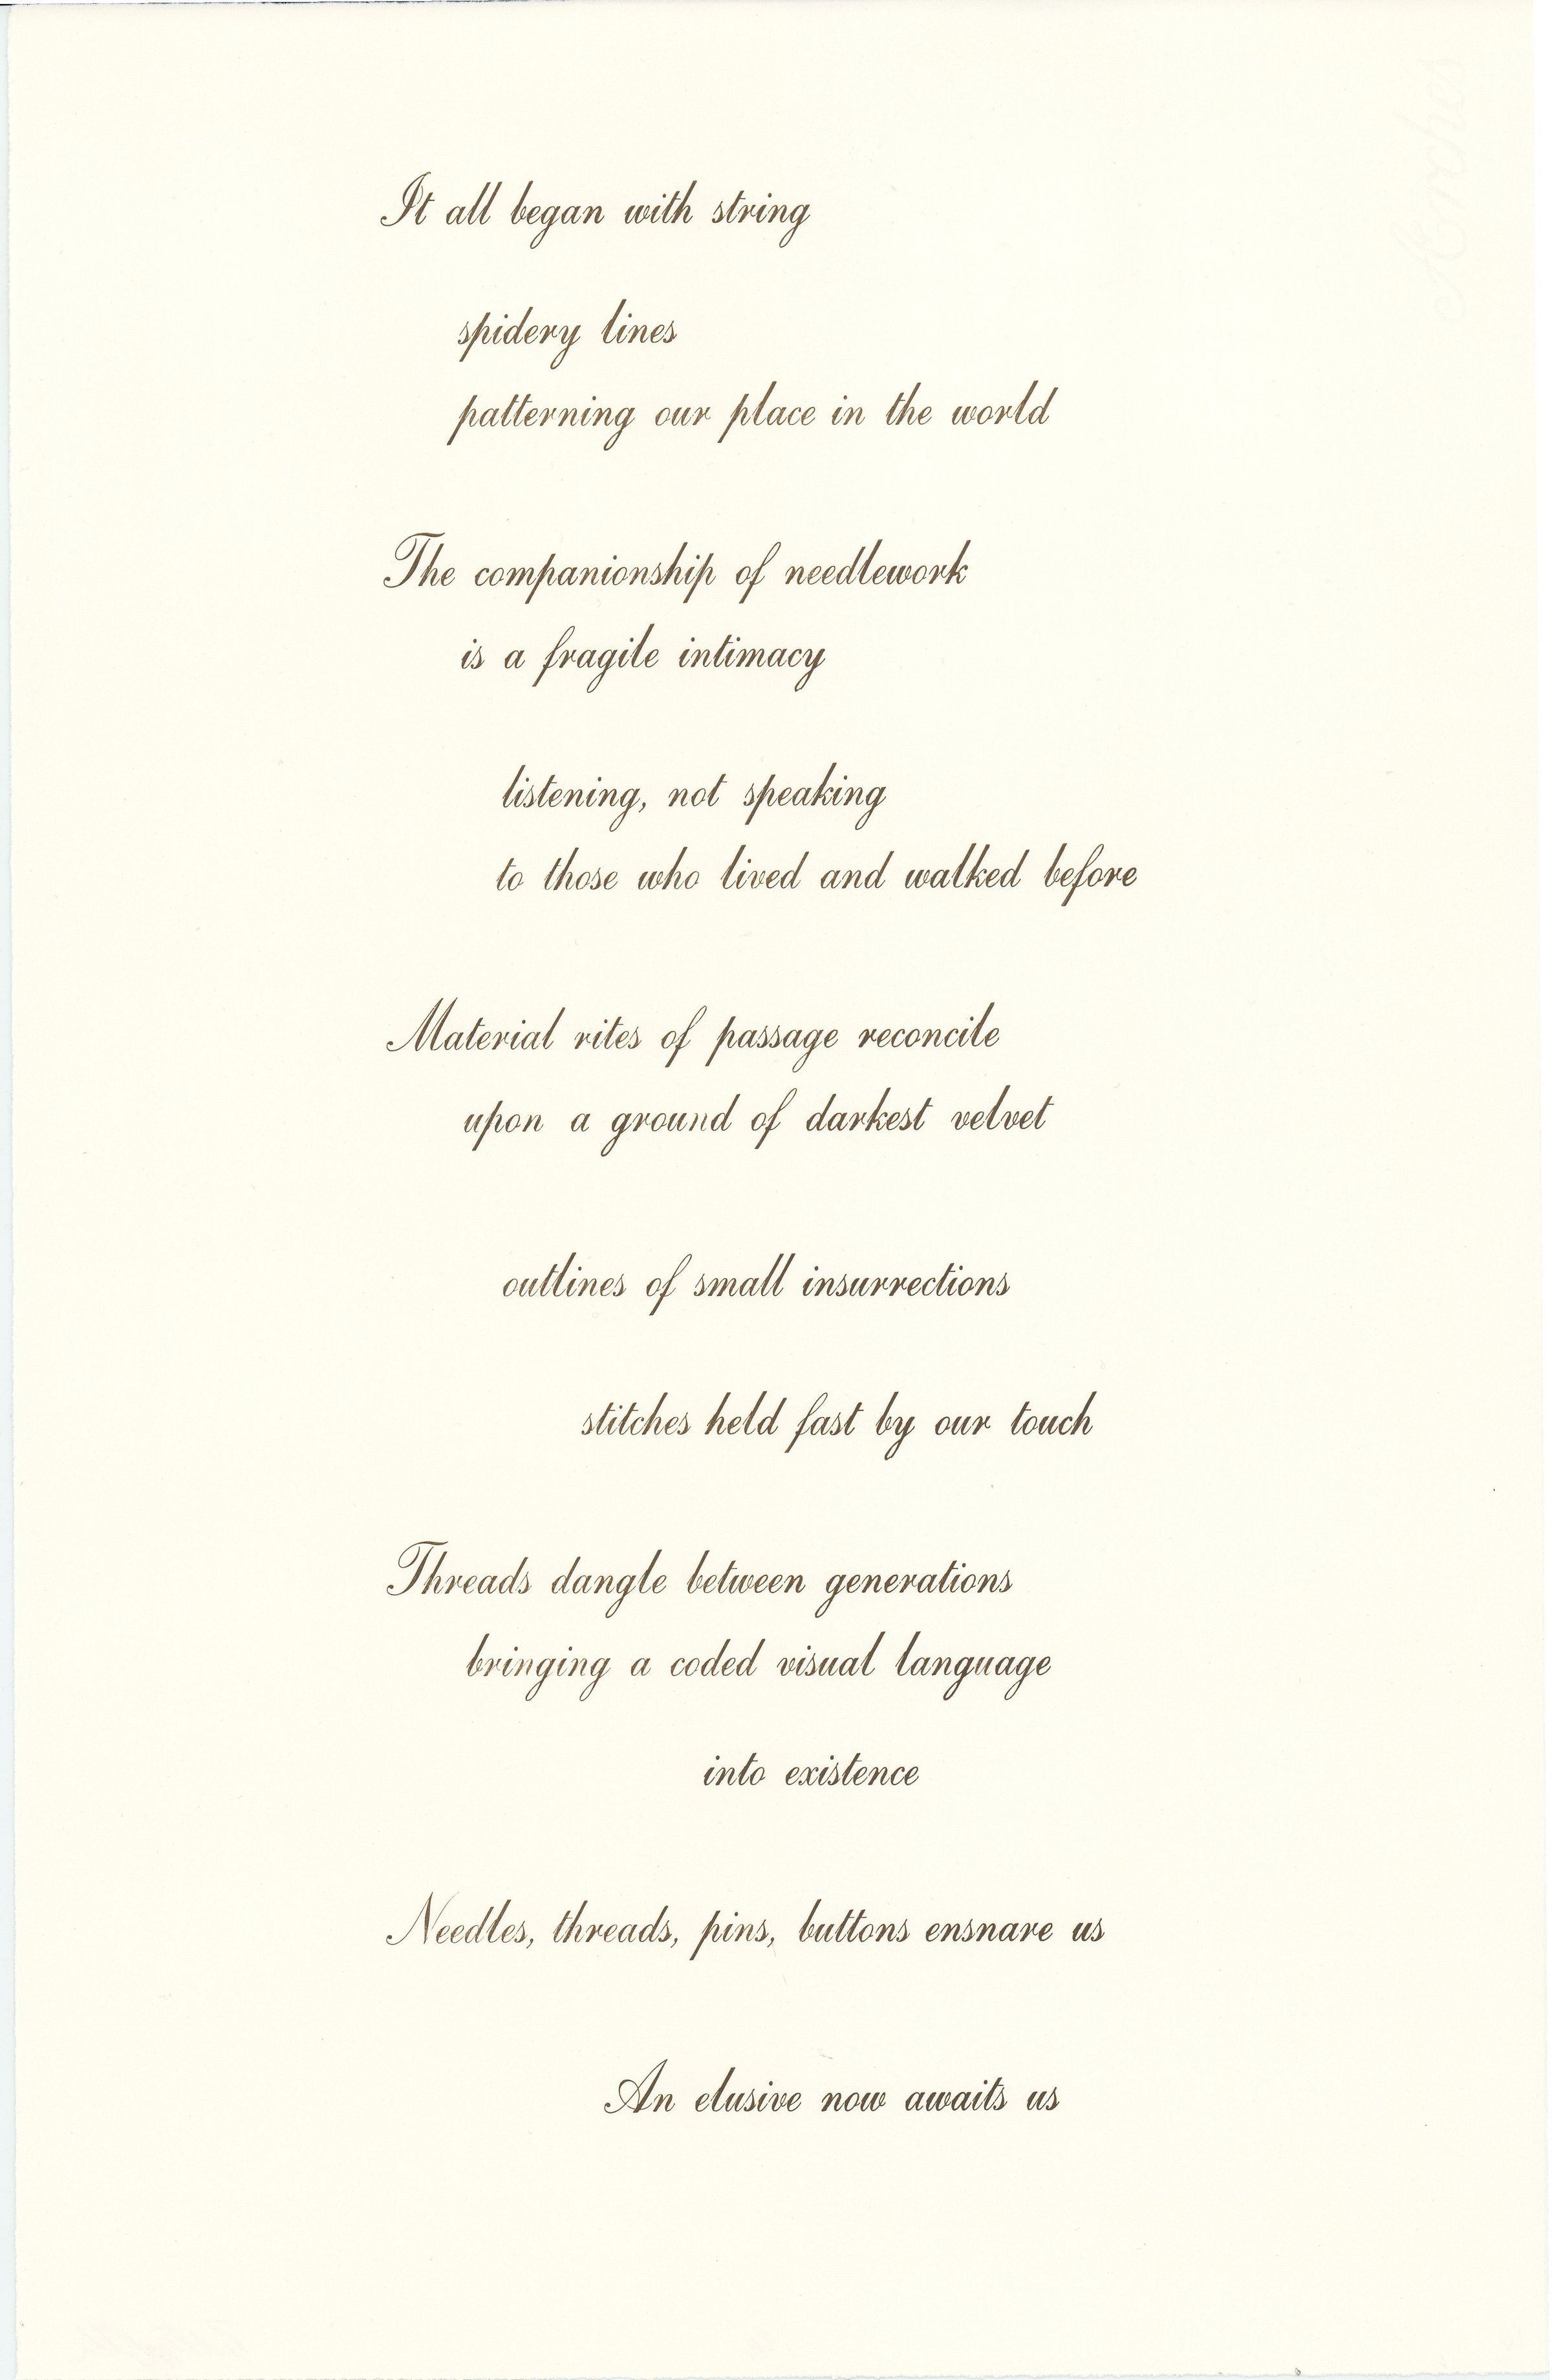 It all began with string
spidery lines
patterning our place in the world
The companionship of needlework
is a fragile intimacy
listening, not speaking
to those who lived and walked before
Material rites of passage reconcile
upon a ground of darkest velvet
outlines of small insurrections
stitches held fast by our touch
Threads dangle between generations
bringing a coded visual language
into existence
Needles, threads, pins, buttons ensnare us
An elusive now awaits us